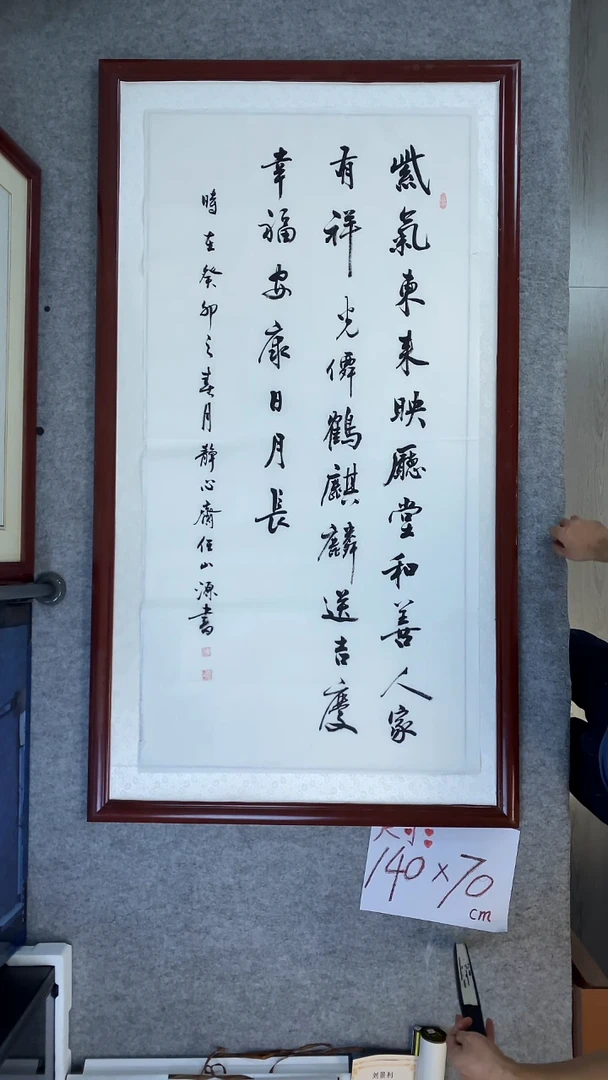 紫氣東来映廳堂和善人家
有祥光僊鶴麒麟送吉慶
幸福安康日月長
時在癸卯之春月靜心齋任山源書
140×70
cm
刘景利